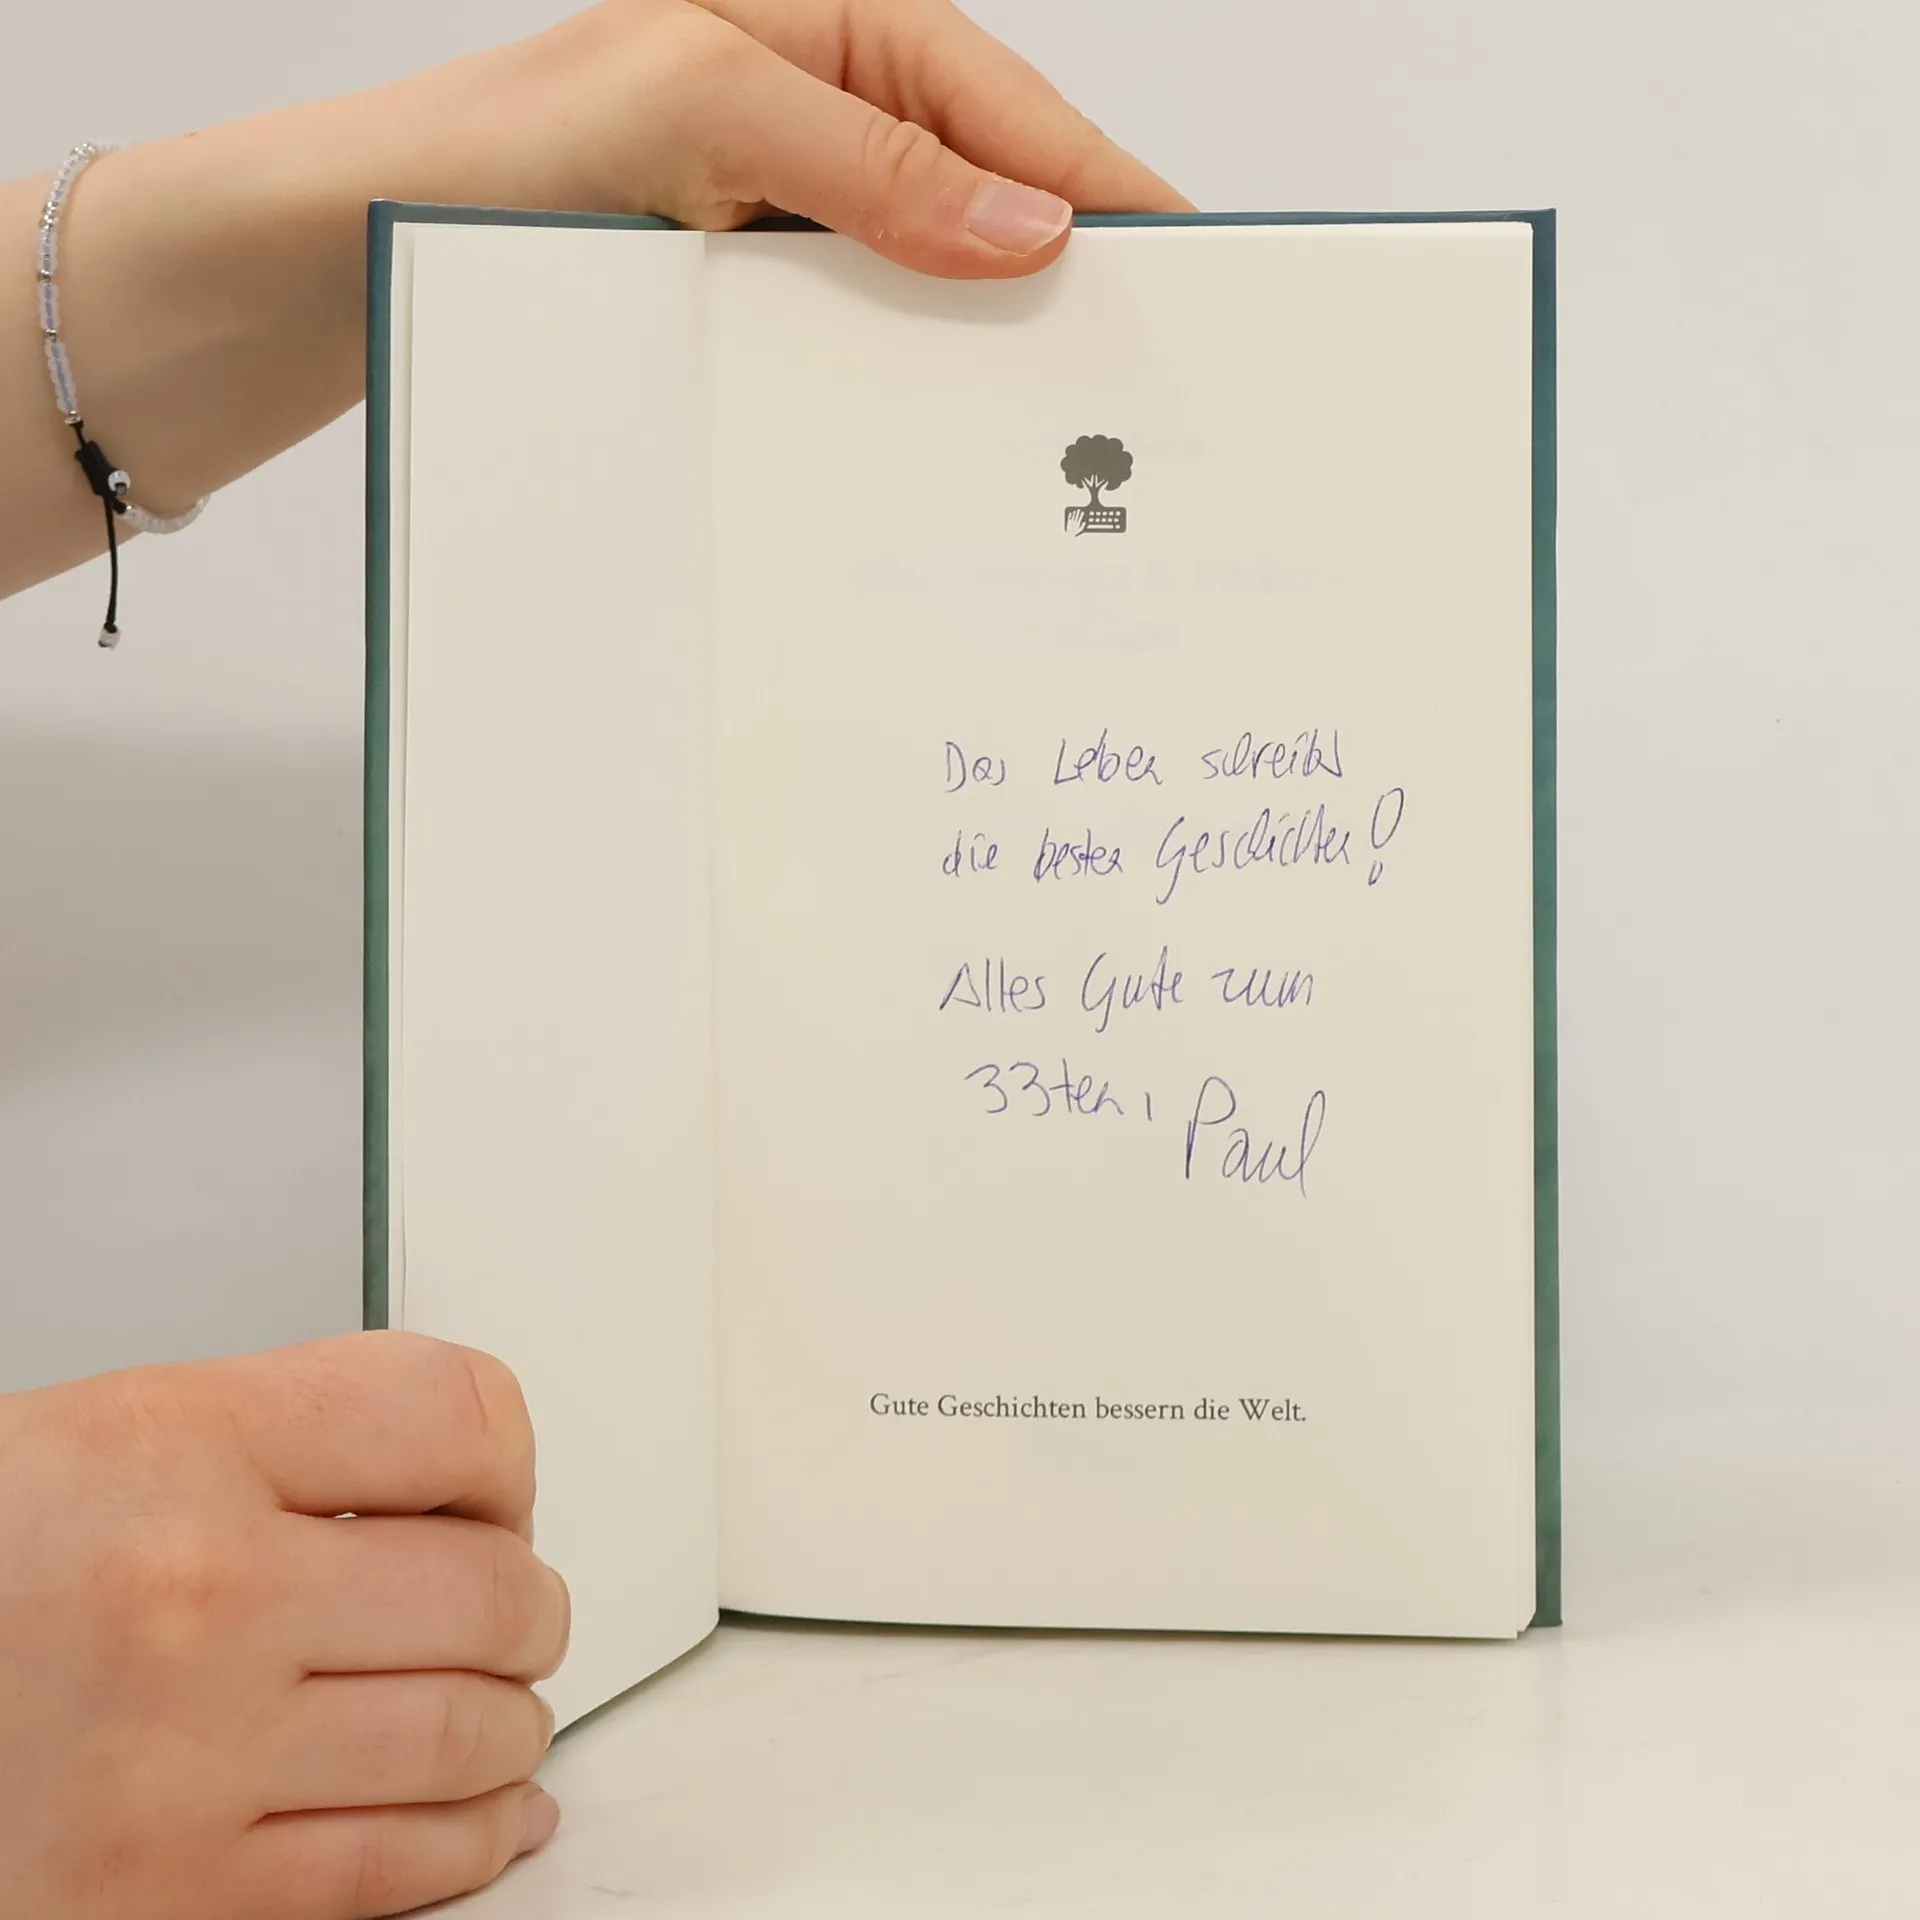 Das Leben schreibt
die besten Geschichten!
Alles Gute zum
33ten, Paul
Gute Geschichten bessern die Welt.